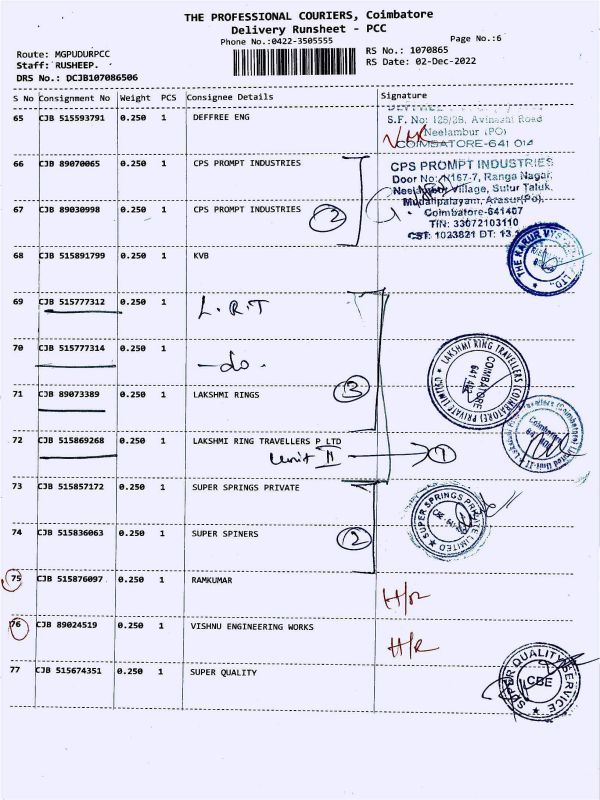 THE PROFESSIONAL COURIERS, Coimbatore
Delivery Runsheet - PCC
Phone No.:0422-3505555
Page No.:6
Route: MGPUDURPCC
RS No.: 1070865
Staff: RUSHEEP.
RS Date: 02-Dec-2022
DRS No.: DCJB107086506
S No Consignment No Weight PCS Consignee Details Signature
65 CJB 515593791 0.250 1 DEFFREE ENG
S.F. No: 125/28, Avinashi Road
Neelambur (PO)
COIMBATORE-641 014
66 CJB 89070065 0.250 1 CPS PROMPT INDUSTRIES
CPS PROMPT INDUSTRIES
Door No: N167-7, Ranga Nagar,
Village, Sulur Taluk,
Mudalipalayam, Arasur(Po),
Coimbatore-641407
TIN: 33072103110
CST: 1023821 DT: 13.
67 CJB 89030998 0.250 1 CPS PROMPT INDUSTRIES
2
68 CJB 515891799 0.250 1 KVB
THE KARUR VYSYA LTD.
69 CJB 515777312 0.250 1 L.R.T
70 CJB 515777314 0.250 1 -do.
LAKSHMI RING TRAVELLERS (COIMBATORE) PRIVATE LIMITED
COIMBATORE
641 402
71 CJB 89073389 0.250 1 LAKSHMI RINGS
3
72 CJB 515869268 0.250 1 LAKSHMI RING TRAVELLERS P LTD
Unit II
1
Lakshmi Ring Travellers (Coimbatore) Limited Unit-II
Coimbatore
73 CJB 515857172 0.250 1 SUPER SPRINGS PRIVATE
SUPER SPRINGS PRIVATE LIMITED
74 CJB 515836063 0.250 1 SUPER SPINERS
2
75 CJB 515876097 0.250 1 RAMKUMAR
H/R
76 CJB 89024519 0.250 1 VISHNU ENGINEERING WORKS
H/R
77 CJB 515674351 0.250 1 SUPER QUALITY
SUPER QUALITY SERVICE
CBE